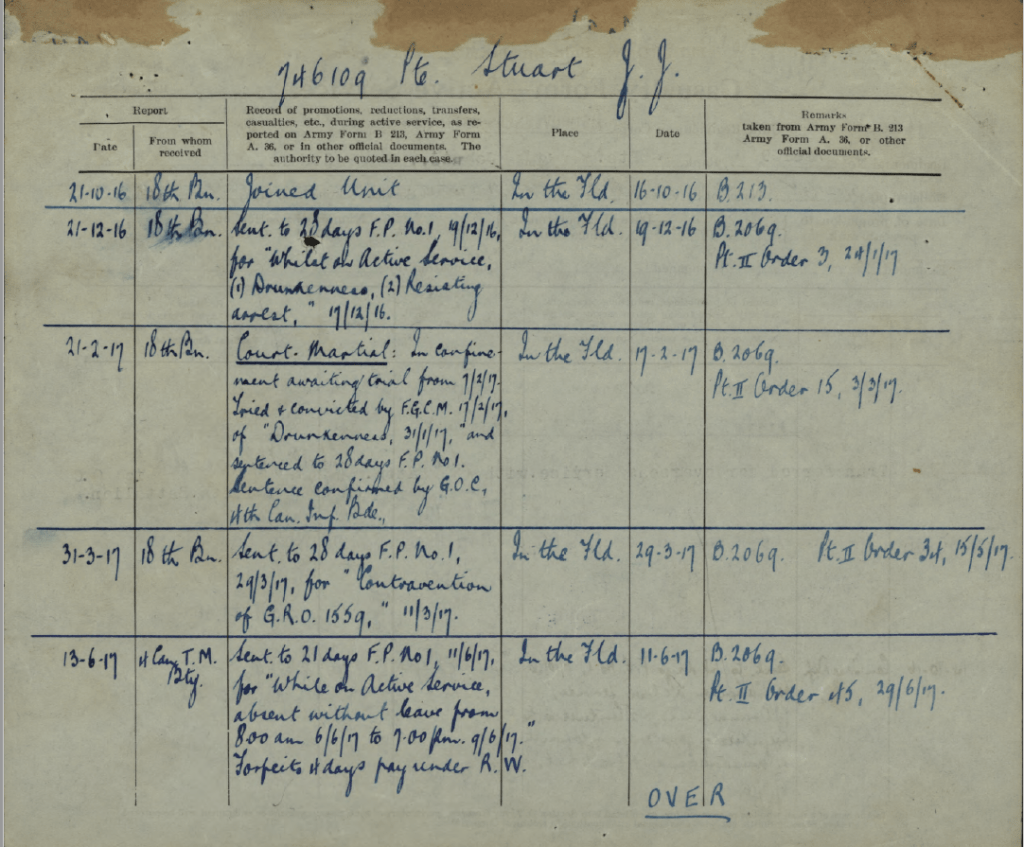 746109 Pte. Stuart J. J.
Report
Date
From whom
received
Record of promotions, reductions, transfers,
casualties, etc., during active service, as re-
ported on Army Form B 213, Army Form
A. 36, or in other official documents. The
authority to be quoted in each case.
Place
Date
Remarks
taken from Army Form B. 213
Army Form A. 36, or other
official documents.
21-10-16 18th Bn. Joined Unit In the Fld. 16-10-16 B.213.
21-12-16 18th Bn. Sent. to 28 days F.P. No.1, 19/12/16, In the Fld. 19-12-16 B.2069.
for "Whilst on Active Service, Pt. II Order 3, 24/1/17
(1) Drunkenness, (2) Resisting
arrest," 17/12/16.
21-2-17 18th Bn. Court-Martial: In confine- In the Fld. 17-2-17 B.2069.
ment awaiting trial from 7/2/17. Pt. II Order 15, 3/3/17.
Tried & convicted by F.G.C.M. 17/2/17,
of "Drunkenness, 31/1/17," and
sentenced to 28 days F.P. No 1.
Sentence confirmed by G.O.C,
4th Can. Inf. Bde.,
31-3-17 18th Bn. Sent. to 28 days F.P. No.1, In the Fld. 29-3-17 B.2069. Pt. II Order 34, 15/5/17.
29/3/17, for "Contravention
of G.R.O. 1559," 11/3/17.
13-6-17 4 Can T.M. Sent. to 21 days F.P. No 1, 11/6/17, In the Fld. 11-6-17 B.2069.
Bty. for "While on Active Service, Pt. II Order 45, 29/6/17.
absent without leave from
8.00 am 6/6/17 to 7.00 pm. 9/6/17."
Forfeits 4 days pay under R.W.
OVER